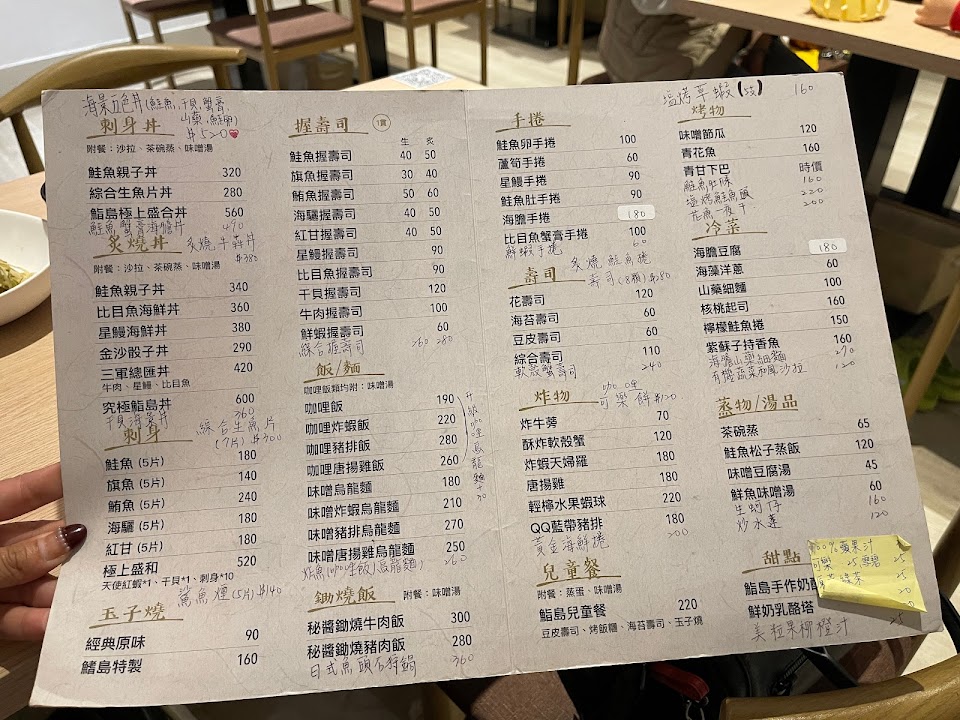 海景五色丼(鮭魚,干貝,蟹膏,
山藥,鮭卵)
$520
刺身丼
附餐：沙拉、茶碗蒸、味噌湯
鮭魚親子丼 320
綜合生魚片丼 280
鮨島極上盛合丼 560
鮭魚蟹膏海膽丼 490
炙燒丼
炙燒牛丼 $380
附餐：沙拉、茶碗蒸、味噌湯
鮭魚親子丼 340
比目魚海鮮丼 360
星鰻海鮮丼 380
金沙骰子丼 290
三軍總匯丼 420
牛肉、星鰻、比目魚
究極鮨島丼 600
干貝海蔘丼 360
刺身
綜合生魚片
(7片) $300
鮭魚 (5片) 180
旗魚 (5片) 140
鮪魚 (5片) 240
海鱺 (5片) 180
紅甘 (5片) 180
極上盛和 520
天使紅蝦*1、干貝*1、刺身*10
鯊魚煙(5片) $140
玉子燒
經典原味 90
鮨島特製 160
握壽司 1貫
生 炙
鮭魚握壽司 40 50
旗魚握壽司 30 40
鮪魚握壽司 50 60
海鱺握壽司 40 50
紅甘握壽司 40 50
星鰻握壽司 90
比目魚握壽司 90
干貝握壽司 120
牛肉握壽司 100
鮮蝦握壽司 60
綜合握壽司 260 280
飯/麵
咖哩飯類均附：味噌湯
咖哩飯 190
咖哩炸蝦飯 220
咖哩豬排飯 280
咖哩唐揚雞飯 260
升級咖哩烏龍麵+30
味噌烏龍麵 180
味噌炸蝦烏龍麵 210
味噌豬排烏龍麵 270
味噌唐揚雞烏龍麵 250
炸魚(咖哩飯)(烏龍麵) 260
鋤燒飯 附餐：味噌湯
秘醬鋤燒牛肉飯 300
秘醬鋤燒豬肉飯 280
日式魚頭石狩鍋 360
手捲
鮭魚卵手捲 100
蘆筍手捲 60
星鰻手捲 90
鮭魚肚手捲 90
海膽手捲 180
比目魚蟹膏手捲 100
鮮蝦手捲 60
壽司
炙燒鮭魚捲
壽司(8顆) $280
花壽司 120
海苔壽司 60
豆皮壽司 60
綜合壽司 110
軟殼蟹壽司 240
炸物
咖哩
可樂餅 $120
炸牛蒡 70
酥炸軟殼蟹 200
炸蝦天婦羅 200
唐揚雞 180
輕檸水果蝦球 220
QQ藍帶豬排 180
黃金海鮮捲 200
兒童餐
附餐：蒸蛋、味噌湯
鮨島兒童餐 220
豆皮壽司、烤飯糰、海苔壽司、玉子燒
塩烤草蝦(5支) 160
烤物
味噌節瓜 120
青花魚 160
青甘下巴 時價
鮭魚肚味 160
塩烤鮭魚頭 220
花魚一夜干 200
冷菜
海膽豆腐 180
海藻洋蔥 60
山藥細麵 100
核桃起司 160
檸檬鮭魚捲 150
紫蘇子持香魚 160
海膽山藥細麵 270
有機蔬菜和風沙拉 120
蒸物/湯品
茶碗蒸 65
鮭魚松子蒸飯 120
味噌豆腐湯 45
鮮魚味噌湯 60
生蚵仔 160
炒水蓮 120
甜點
鮨島手作奶酪
鮮奶乳酪塔
美粒果柳橙汁 25
100%蘋果汁 25
可樂 25 雪碧
綠茶 20